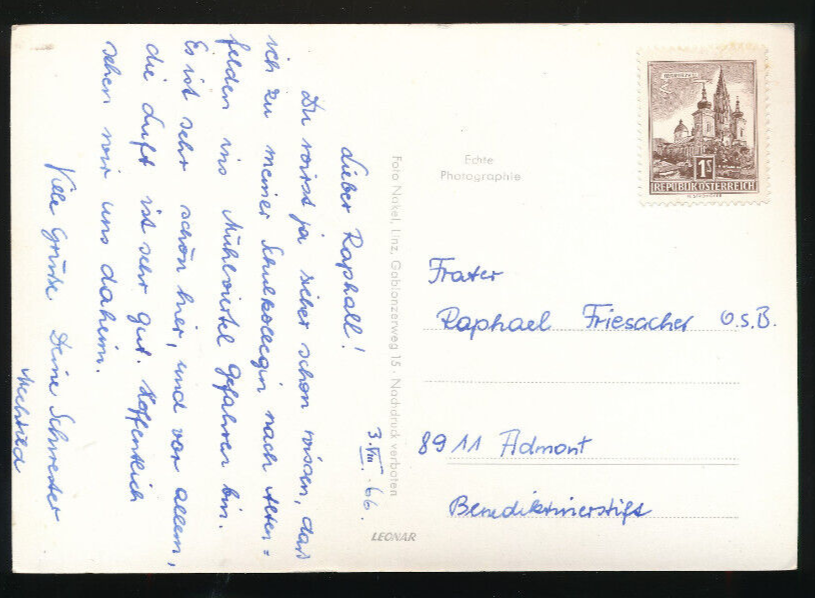 3. VIII. 66.
Lieber Raphall!
Du wirst ja sicher schon wissen, daß
ich zu meiner Schulkollegin nach Alten=
felden ins Mühlviertel gefahren bin.
Es ist sehr schön hier, und vor allem,
die Luft ist sehr gut. Hoffentlich
sehen wir uns daheim.
Viele Grüße Deine Schwester
Mechtild
Foto Nakel, Linz, Gablonzerweg 15 · Nachdruck verboten
Echte
Photographie
LEONAR
1S
REPUBLIK ÖSTERREICH
Frater
Raphael Friesacher O.S.B.
8911 Admont
Benediktinerstift